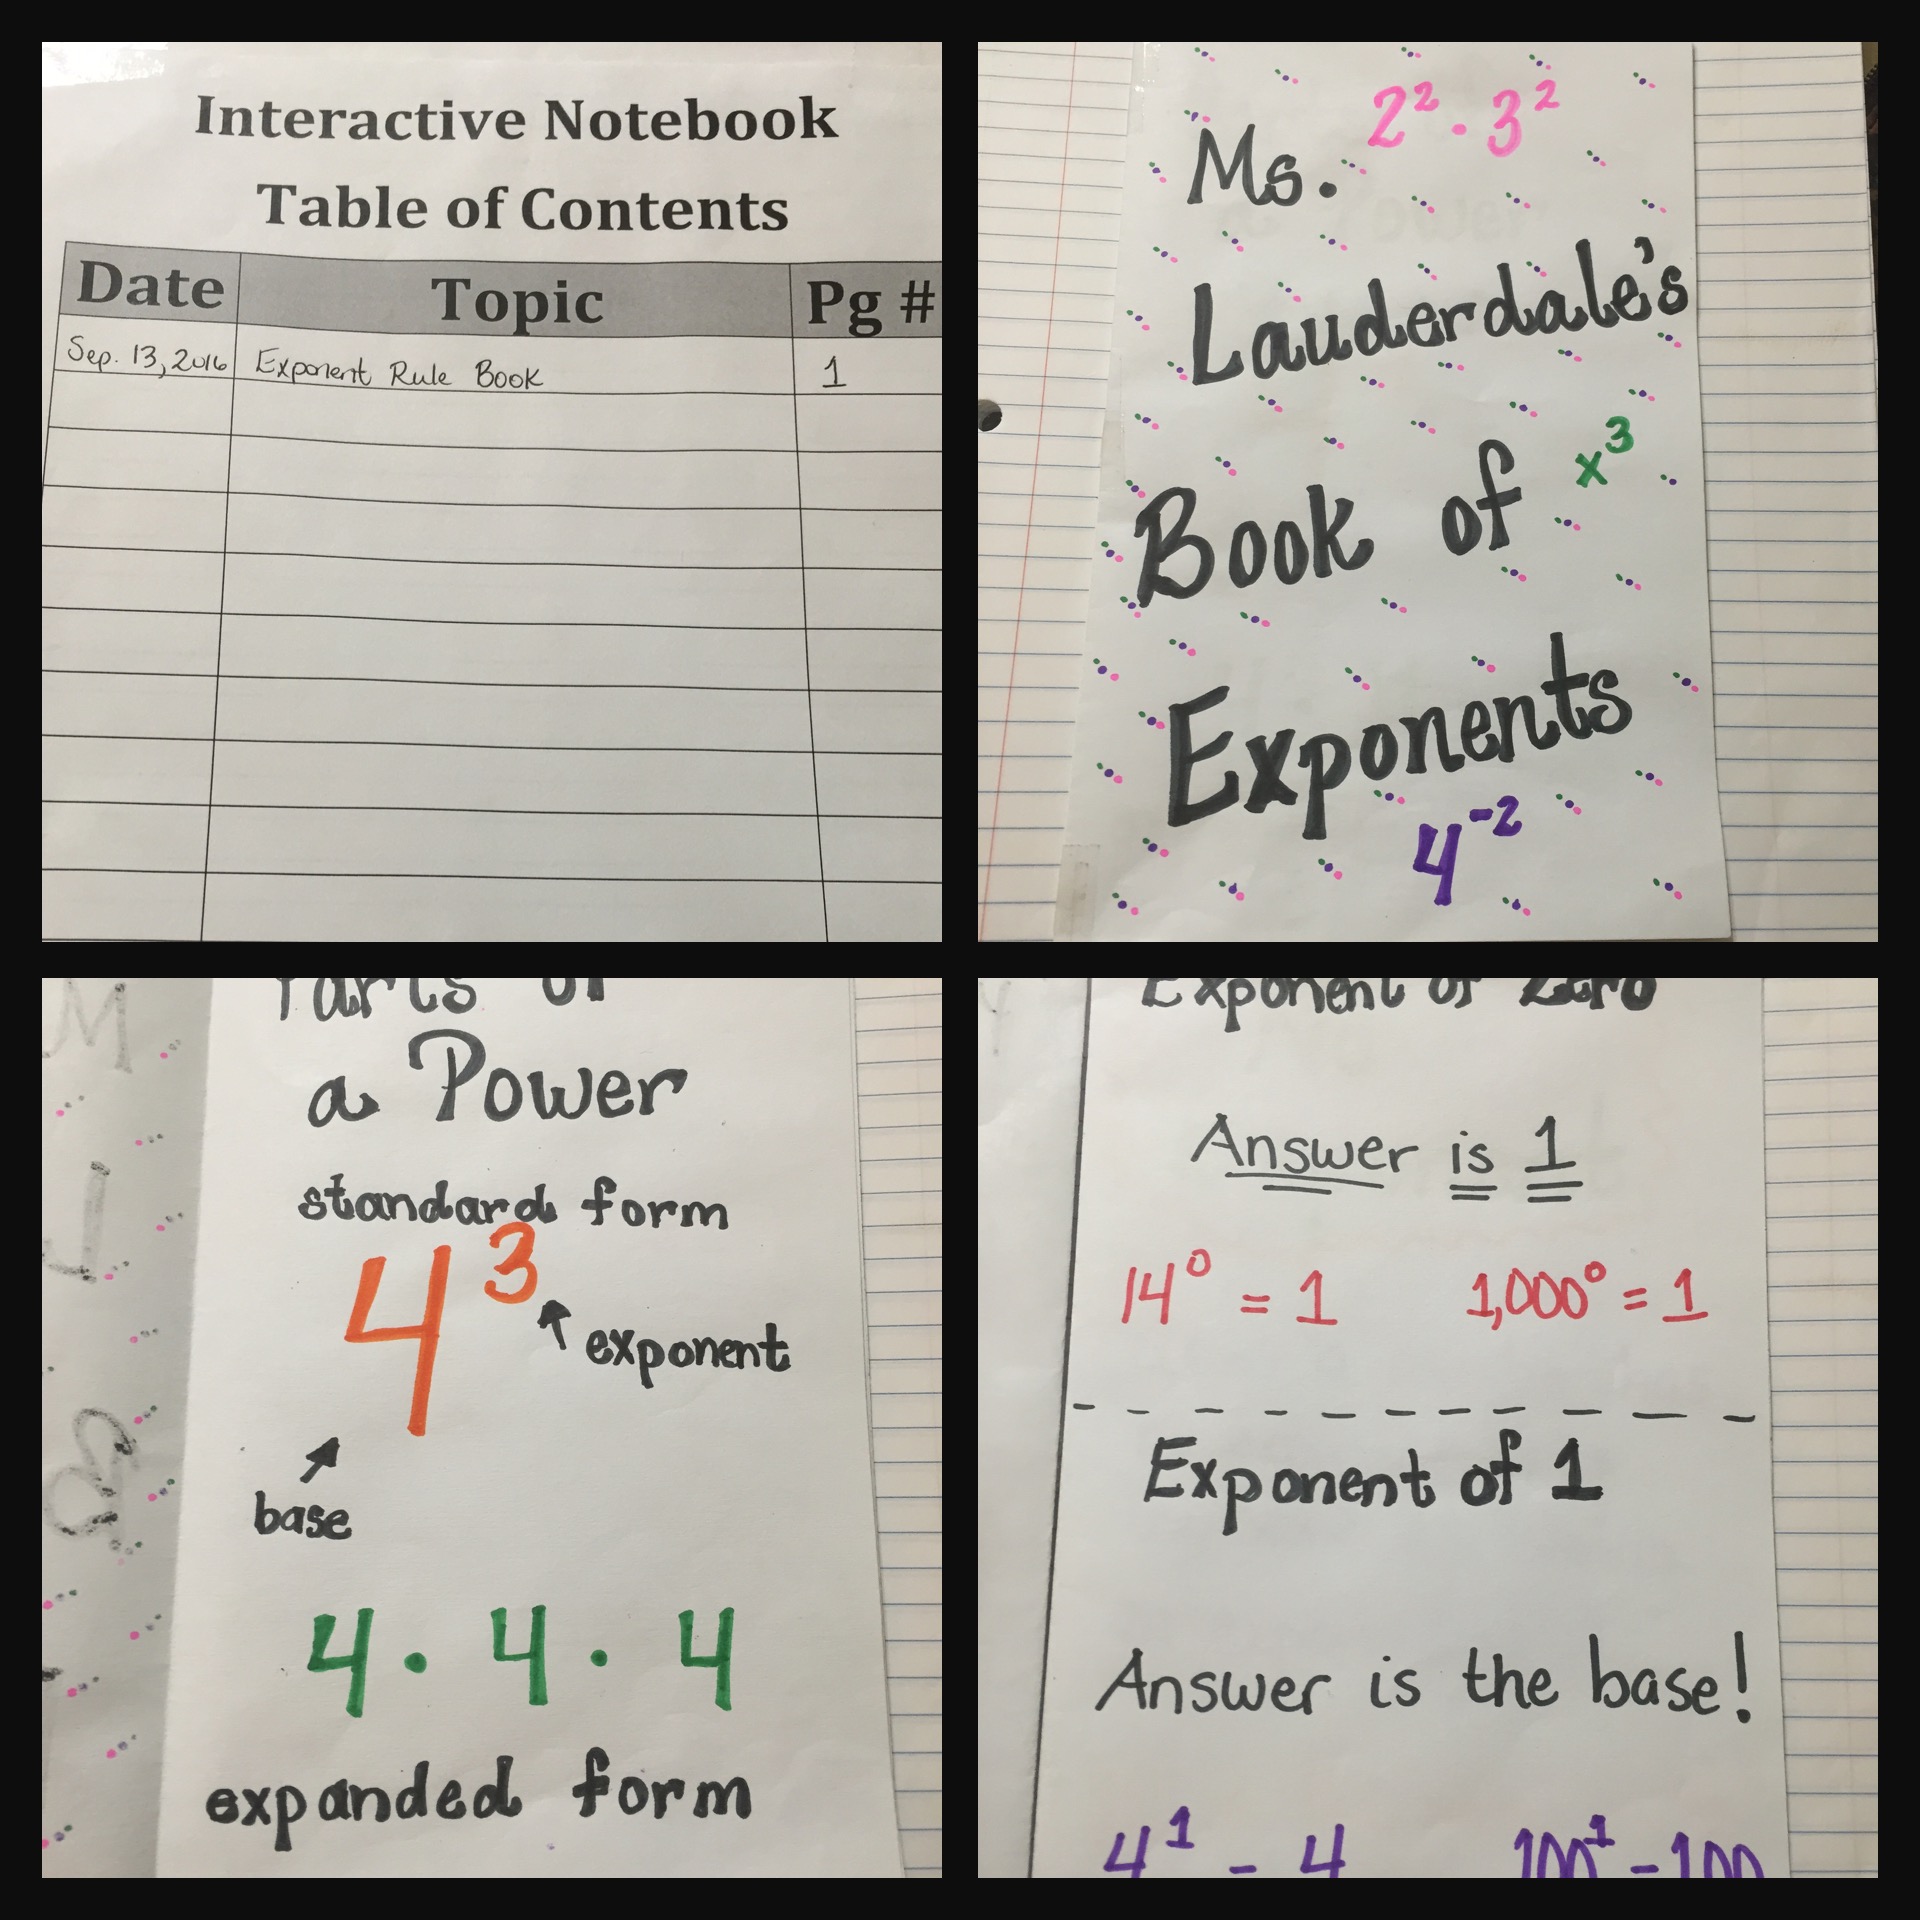 Interactive Notebook
Table of Contents
Date Topic Pg #
Sep. 13, 2016 Exponent Rule Book 1
2² · 3²
Ms.
Lauderdale's
Book of x³
Exponents
4⁻²
Parts of
a Power
standard form
4³
exponent
base
4 · 4 · 4
expanded form
Exponent of Zero
Answer is 1
14⁰ = 1 1,000⁰ = 1
Exponent of 1
Answer is the base!
4¹ = 4 100¹ = 100